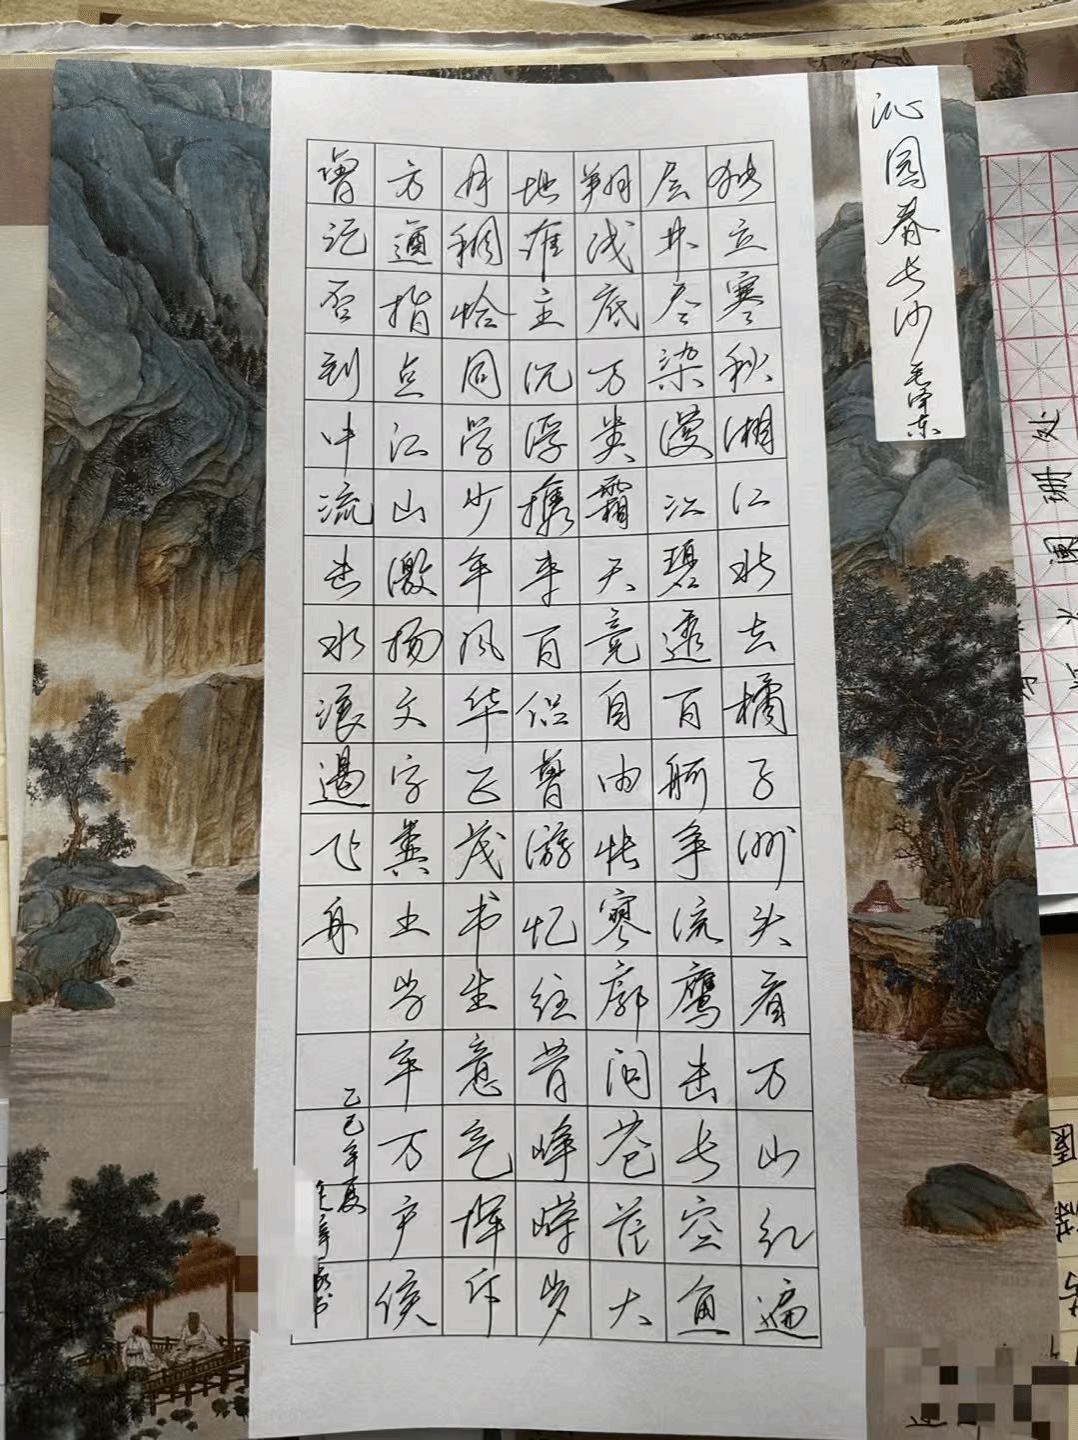 沁园春长沙 毛泽东
独立寒秋湘江北去橘子洲头看万山红遍
层林尽染漫江碧透百舸争流鹰击长空鱼
翔浅底万类霜天竞自由怅寥廓问苍茫大
地谁主沉浮携来百侣曾游忆往昔峥嵘岁
月稠恰同学少年风华正茂书生意气挥斥
方遒指点江山激扬文字粪土当年万户侯
曾记否到中流击水浪遏飞舟
乙巳年夏
阑珊处